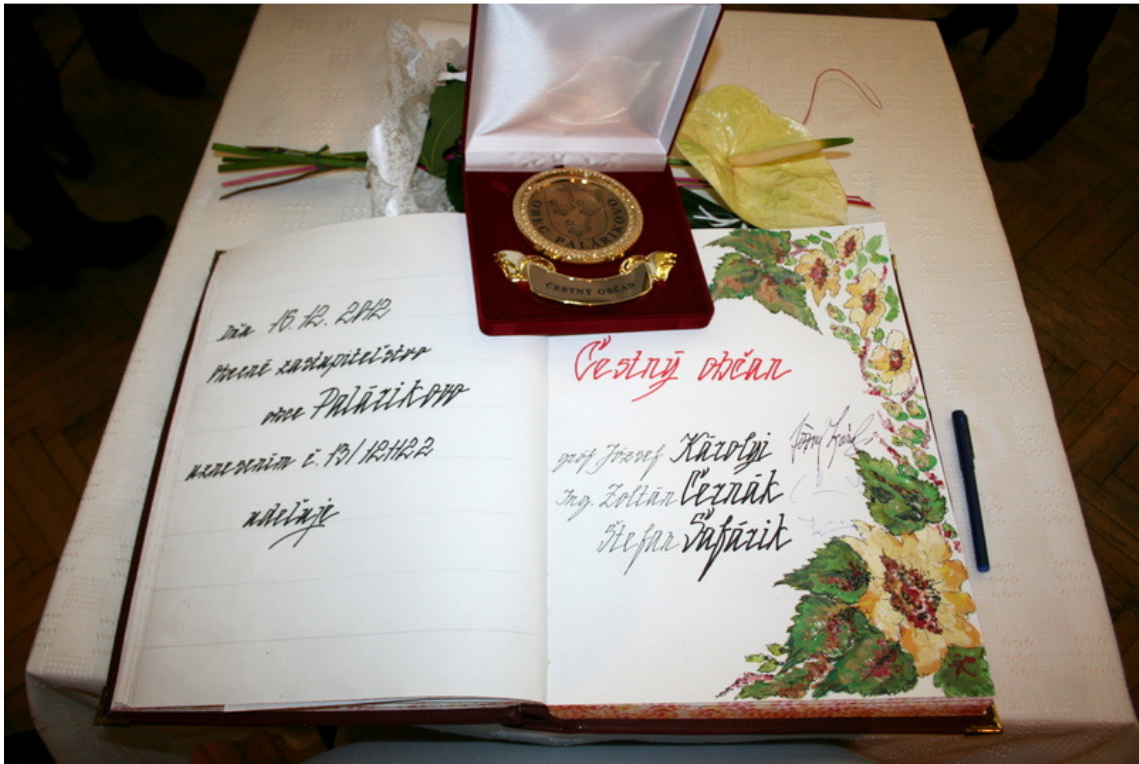 OBEC PALÁRIKOVO
ČESTNÝ OBČAN
Dňa 16. 12. 2012
Obecné zastupiteľstvo
obce Palárikovo
uznesením č. 13/121122
udeľuje
Čestný občan
gróf József Károlyi
Ing. Zoltán Černák
Štefan Šafárik